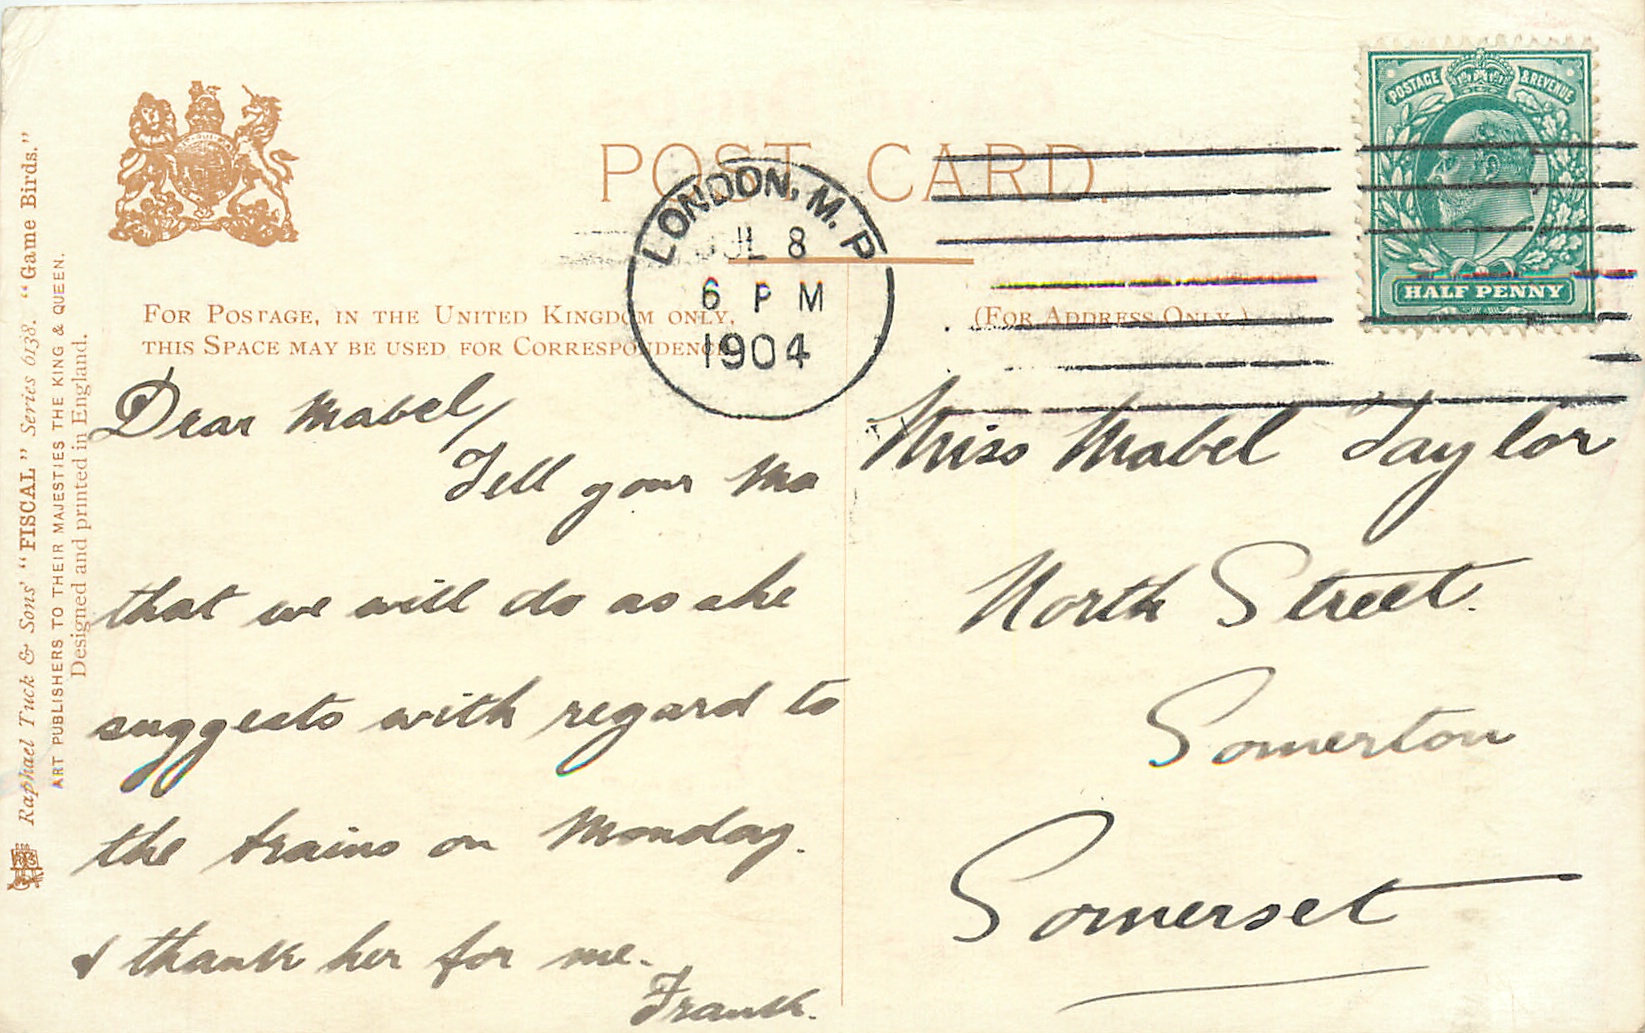 Raphael Tuck & Sons' "FISCAL" Series 0138. "Game Birds."
ART PUBLISHERS TO THEIR MAJESTIES THE KING & QUEEN.
Designed and printed in England.
POST CARD.
LONDON, M.P
JUL 8
6 PM
1904
POSTAGE & REVENUE
HALF PENNY
FOR POSTAGE, IN THE UNITED KINGDOM ONLY,
THIS SPACE MAY BE USED FOR CORRESPONDENCE
(FOR ADDRESS ONLY.)
Dear Mabel,
Tell your Ma
that we will do as she
suggests with regard to
the trains on Monday.
& thank her for me.
Frank.
Miss Mabel Taylor
North Street.
Somerton
Somerset